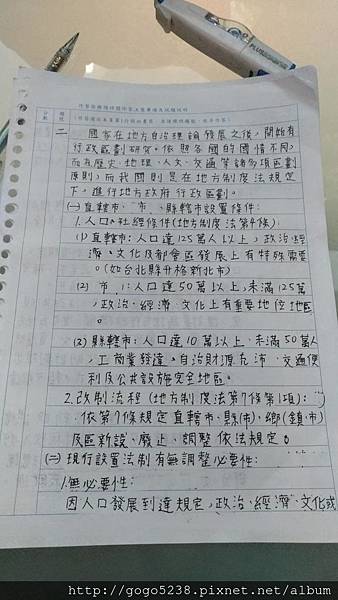 PLUS
二 國家在地方自治理論發展之後,開始有
行政區劃研究。依照各國的國情不同,
而有歷史、地理、人文、交通等諸多項區劃
原則,而我國則是在地方制度法規定
下,進行地方政府行政區劃。
(一)直轄市、市、縣轄市設置條件:
1.人口及社經條件(地方制度法第4條):
(1)直轄市:人口達125萬人以上,政治、經
濟、文化及都會區發展上有特殊需要
。(如台北縣升格新北市)
(2) 市:人口達50萬以上,未滿125萬
,政治、經濟、文化上有重要地位地區
。
(3)縣轄市:人口達10萬以上,未滿50萬人
,工商業發達、自治財源充沛、交通便
利及公共設施完全地區。
2.改制流程(地方制度法第7條第1項):
依第7條規定直轄市、縣(市)、鄉(鎮、市)
及區新設、廢止、調整依法規定。
(二)現行設置法制有無調整必要性:
1.無必要性:
因人口發展到達規定,政治、經濟、文化或
http://gogo5238.pixnet.net/album